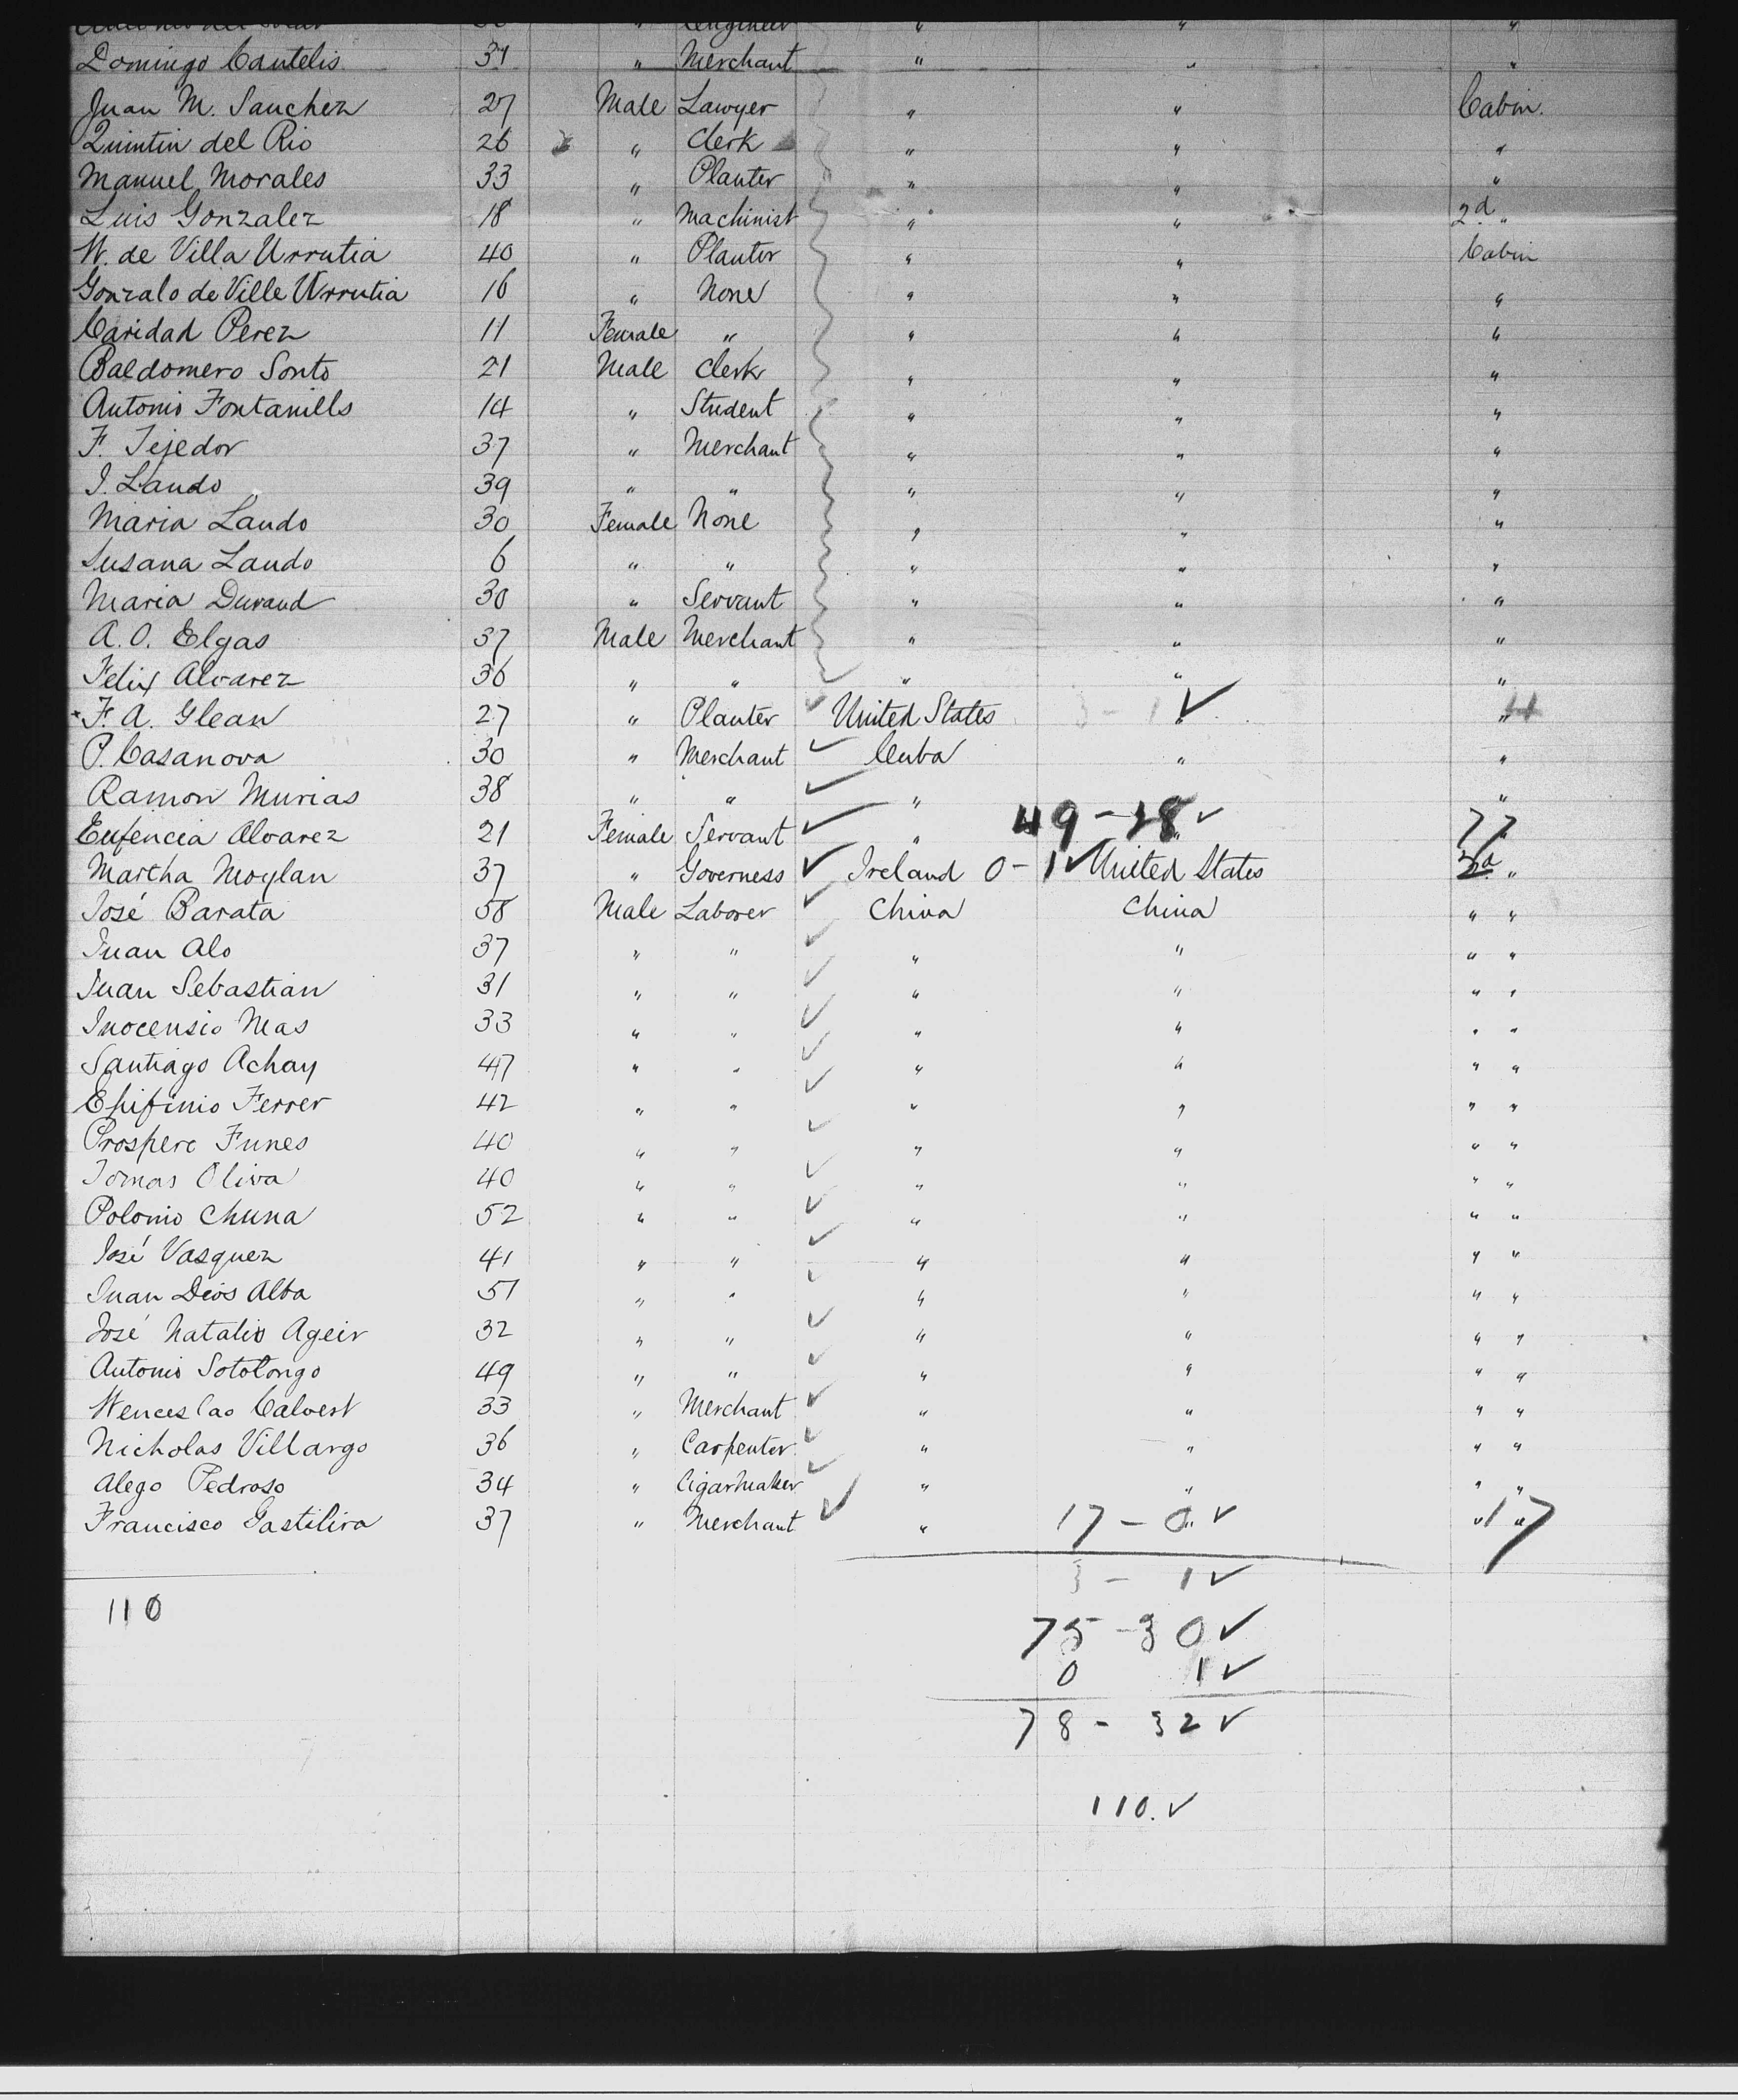 Engineer " " "
Domingo Cantelis 37 " Merchant " " "
Juan M. Sanchez 27 Male Lawyer " " Cabin.
Quintin del Rio 26 " Clerk " " "
Manuel Morales 33 " Planter " " "
Luis Gonzalez 18 " Machinist " " 2d "
W. de Villa Urrutia 40 " Planter " " Cabin
Gonzalo de Ville Urrutia 16 " None " " "
Caridad Perez 11 Female " " " "
Baldomero Sonto 21 Male Clerk " " "
Antonio Fontanills 14 " Student " " "
F. Tejedor 37 " Merchant " " "
I. Lando 39 " " " " "
Maria Lando 30 Female None " " "
Susana Lando 6 " " " " "
Maria Durand 30 " Servant " " "
A. O. Elgas 37 Male Merchant " " "
Felix Alvarez 36 " " " " "
F. A. Glean 27 " Planter ✓ United States 3 - 1 ✓ " 4
P. Casanova 30 " Merchant ✓ Cuba " "
Ramon Murias 38 " " ✓ " " "
Eufencia Alvarez 21 Female Servant ✓ " 49 - 28 ✓ 77
Martha Moylan 37 " Governess ✓ Ireland 0 - 1 ✓ United States 2d "
José Barata 58 Male Laborer ✓ China China " "
Juan Alo 37 " " ✓ " " " "
Juan Sebastian 31 " " ✓ " " " "
Inocensio Mas 33 " " ✓ " " " "
Santiago Achay 47 " " ✓ " " " "
Epifinio Ferrer 42 " " ✓ " " " "
Prospero Funes 40 " " ✓ " " " "
Tomas Oliva 40 " " ✓ " " " "
Polonio Chuna 52 " " ✓ " " " "
José Vasquez 41 " " ✓ " " " "
Juan Dios Alba 51 " " ✓ " " " "
José Natalio Ageir 32 " " ✓ " " " "
Antonio Sotolongo 49 " " ✓ " " " "
Wenceslao Calvert 33 " Merchant ✓ " " " "
Nicholas Villargo 36 " Carpenter ✓ " " " "
Alego Pedroso 34 " Cigarmaker ✓ " " " "
Francisco Gastilira 37 " Merchant ✓ " 17 - 0 ✓ " 17 "
3 - 1 ✓
110
75 - 30 ✓
0 1 ✓
78 - 32 ✓
110. ✓